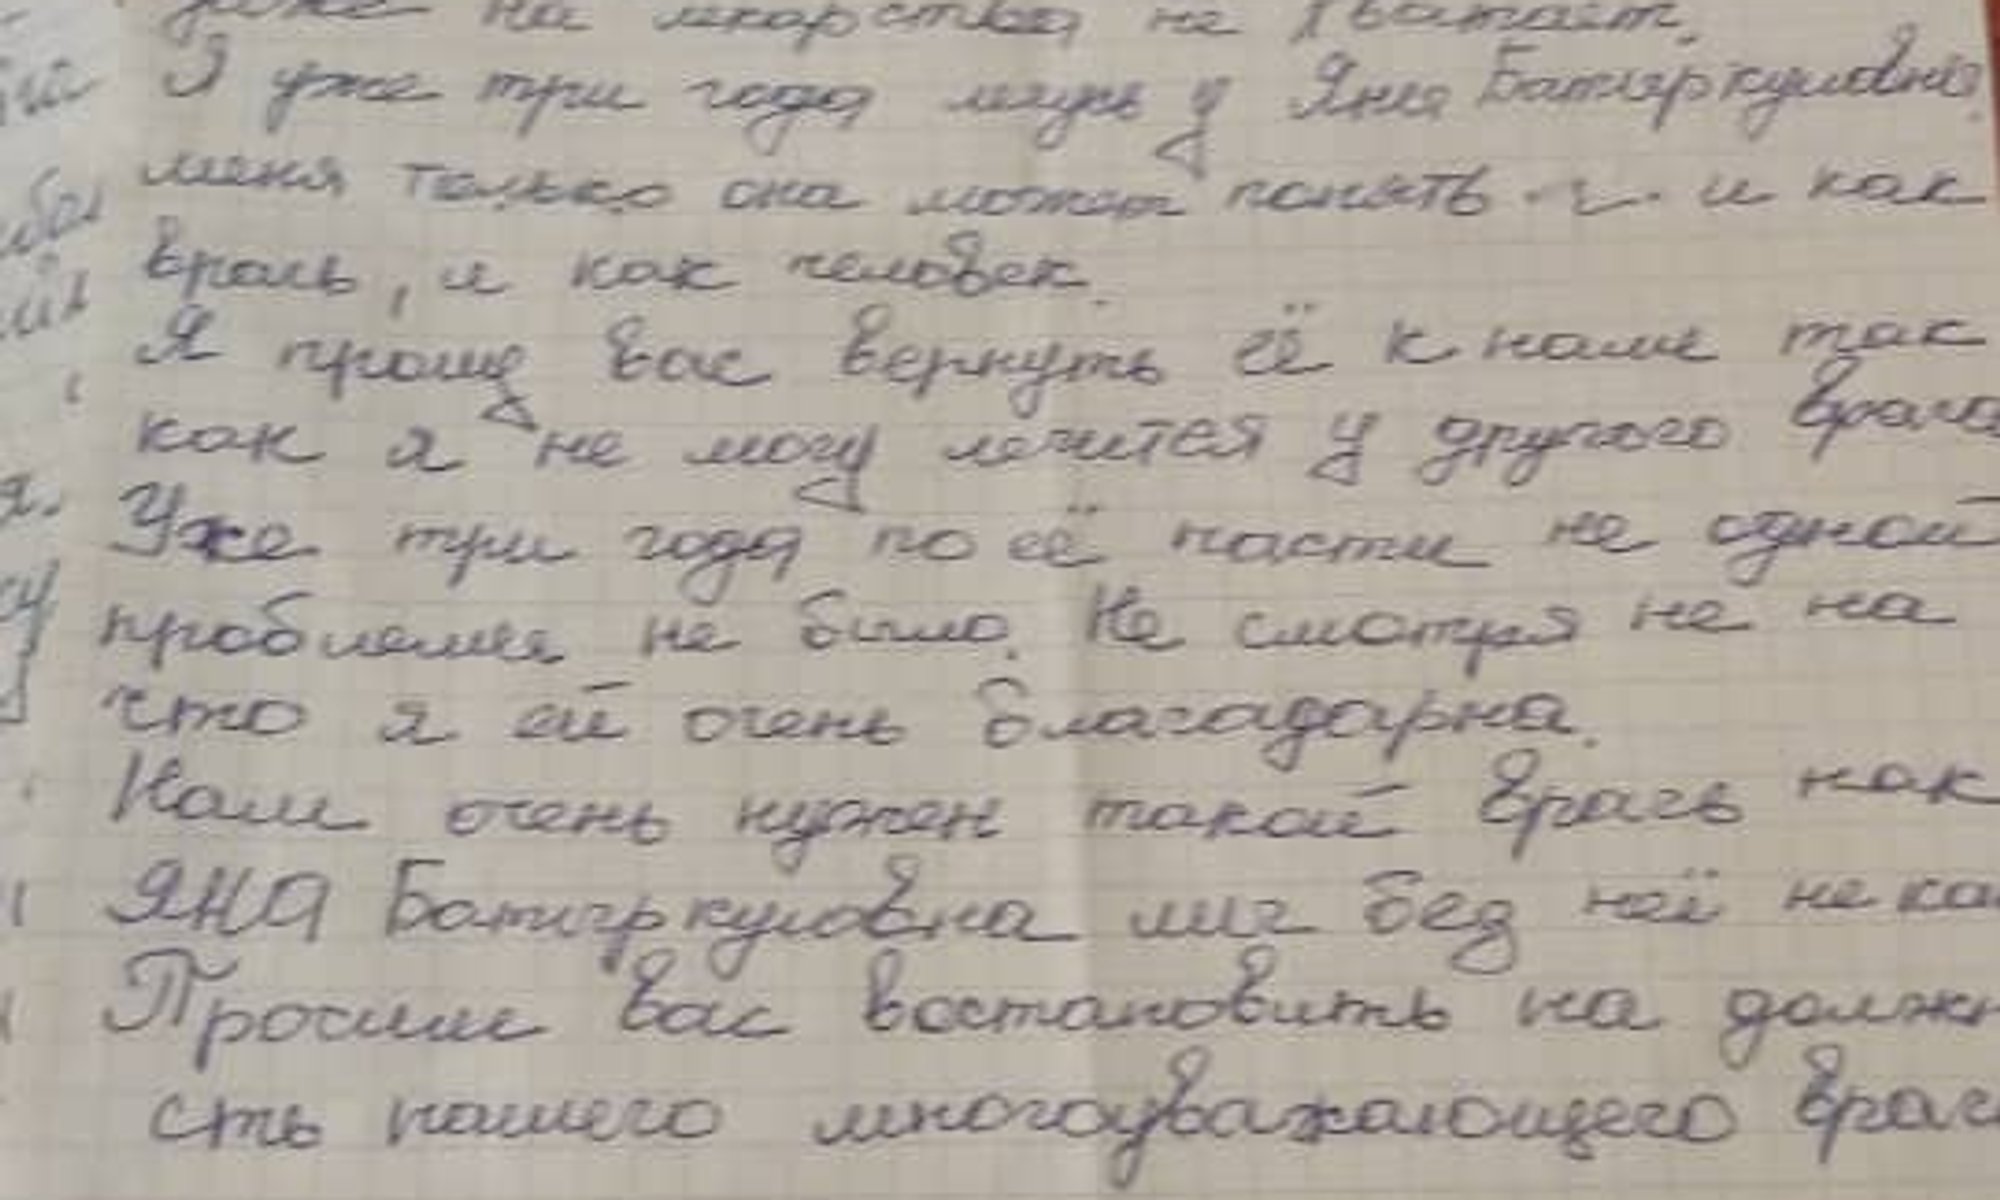 даже на лекарства не хватает.
Я уже три года лечусь у Яны Батыркуловны.
меня только она может понять и как
врачь, и как человек.
Я прошу вас вернуть её к нам так
как я не могу лечится у другого врача
Уже три года по её части не одной
проблемы не было. Не смотря не на
что я ей очень благадарна.
Нам очень нужен такой врачь как
ЯНА Батыркуловна мы без неё не ка
Просим вас востановить на должн
сть нашего многоуважающего врач